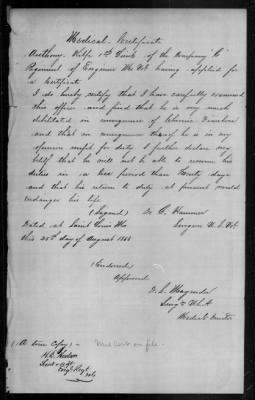 Medical Certificate
1st Lieut of the Company "C"
Regiment of Engineers Mo Vol having applied for
a Certificate
I do hereby certify that I have carefully examined
this officer and find that he is very much
debilitated in consequence of Chronic Diarrhea
and that in consequence thereof he is in my
opinion unfit for duty. I further declare my
belief that he will not be able to resume his
duties in a less period than twenty days
and that his return to duty at present would
endanger his life.
(Signed) Dr C. Hammer
Surgeon U.S. Vol
Dated at Saint Louis Mo
this 25th day of August
(Endorsed)
Approved
Surg U.S.A
Medical Director
(A true Copy) - Med Cert on file.
Lieut &
Engr Regt